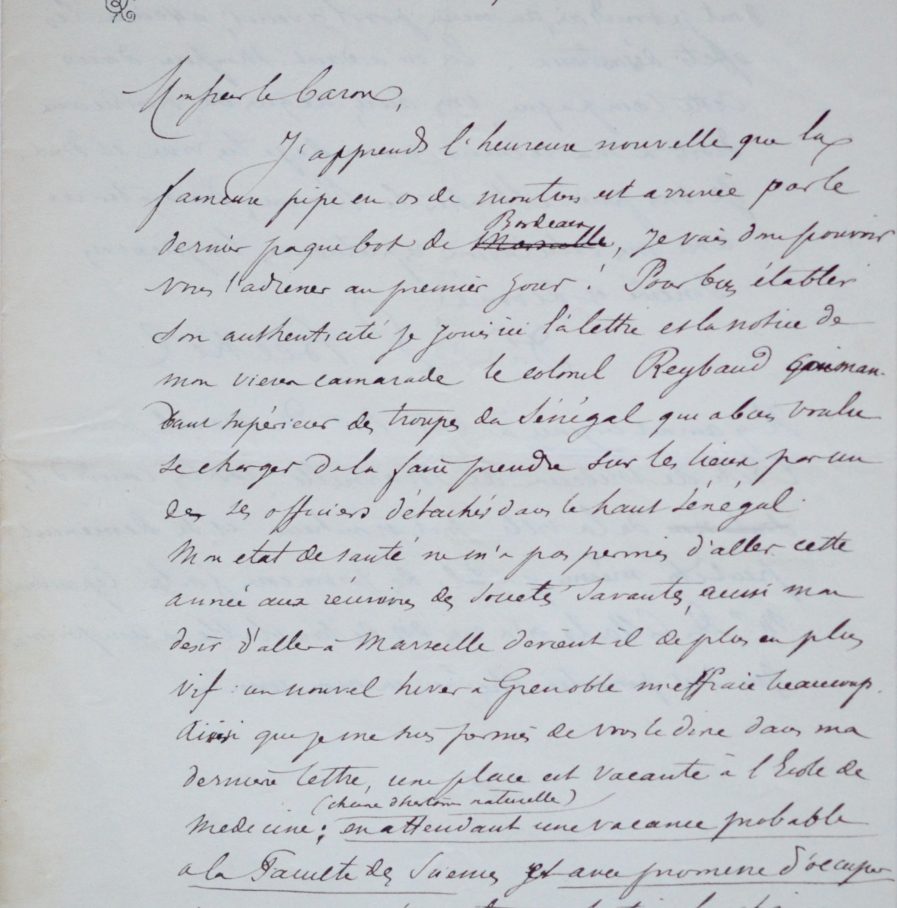 Monsieur le Baron,
J'apprends l'heureuse nouvelle que la
fameuse pipe en os de mouton est arrivée par le
dernier paquebot de Marseille Bordeaux, je vais donc pouvoir
vous l'adresser au premier jour ! Pour bien établir
son authenticité je joins ici la lettre et la notice de
mon vieux camarade le colonel Reybaud comman-
dant supérieur des troupes du Sénégal qui a bien voulu
se charger de la faire prendre sur les lieux par un
de ses officiers détachés dans le haut Sénégal.
Mon état de santé ne m'a pas permis d'aller cette
année aux réunions des Sociétés Savantes, aussi mon
désir d'aller à Marseille devient il de plus en plus
vif : un nouvel hiver à Grenoble m'effraie beaucoup.
Ainsi que je me suis permis de vous le dire dans ma
dernière lettre, une place est vacante à l'Ecole de
Médecine (chaire d'histoire naturelle) ; en attendant une vacance probable
à la Faculté des Sciences et avec promesse d'occuper